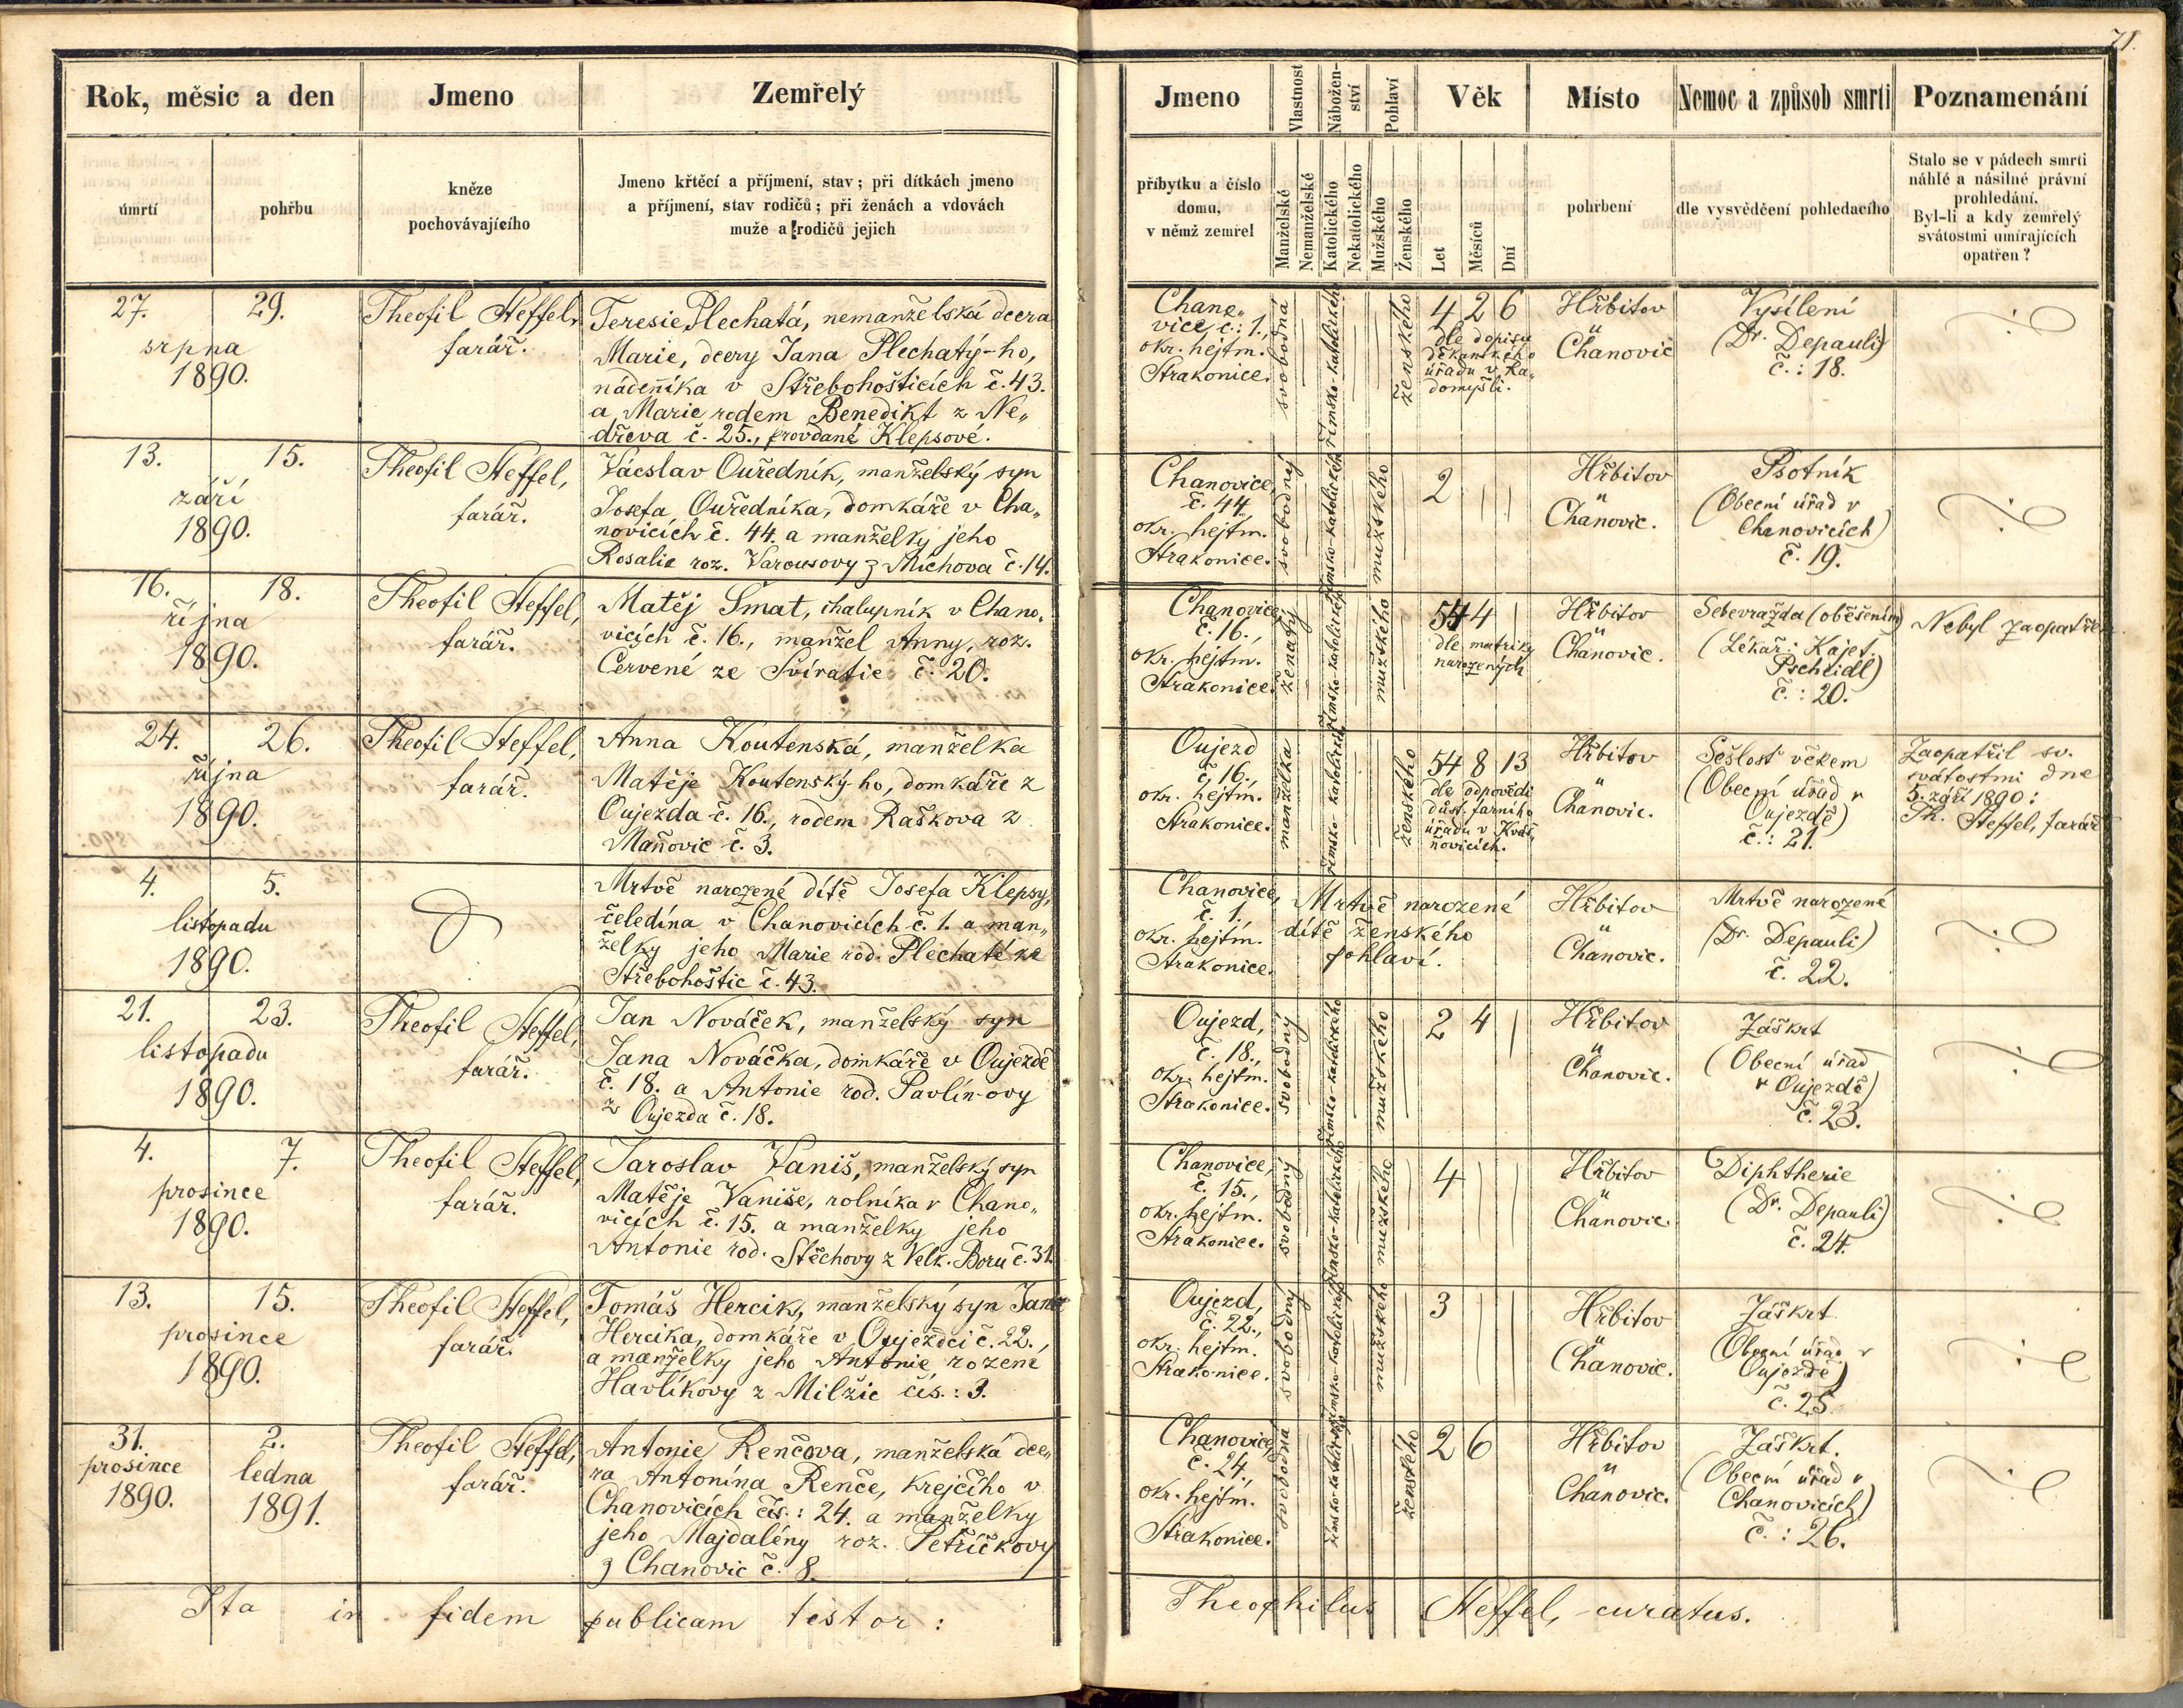 71.
Rok, měsíc a den
Jmeno
Zemřelý
úmrtí
pohřbu
kněze
pochovávajícího
Jmeno křtěcí a příjmení, stav; při dítkách jmeno
a příjmení, stav rodičů; při ženách a vdovách
muže a rodičů jejich
Jmeno
Vlastnost
Nábožen-
ství
Pohlaví
Věk
Místo
Nemoc a způsob smrti
Poznamenání
příbytku a číslo
domu,
v němž zemřel
Manželské
Nemanželské
Katolického
Nekatolického
Mužského
Ženského
Let
Měsíců
Dní
pohrbení
dle vysvědčení pohledacího
Stalo se v pádech smrti
náhlé a násilné právní
prohledání.
Byl-li a kdy zemřelý
svátostmi umírajících
opatřen?
27. 29.
srpna
1890.
Theofil Steffel,
farář.
Teresie Plechatá, nemanželská dcera
Marie, dcery Jana Plechatý-ho,
nádenníka v Střebohošticích č. 43.
a Marie rodem Benedikt z Ne„
dřeva č. 25., provdané Klepsové.
Chano„
vice, č.: 1.,
okr. hejtm.
Strakonice.
svobodná
římsko-katolického
ženského
4 2 6
dle dopisu
děkanského
úřadu v Ra„
domyšli.
Hřbitov
Chanovic
Vysílení
(Dr. Depauli)
č.: 18.
13. 15.
září
1890.
Theofil Steffel,
farář.
Václav Ouředník, manželský syn
Josefa Ouředníka, domkáře v Cha„
novicích č. 44. a manželky jeho
Rosalie roz. Varousovy z Míchova č. 14.
Chanovice,
č. 44
okr. hejtm.
Strakonice.
svobodný
římsko-katolického
mužského
2
Hřbitov
Chanovic.
Psotník
(Obecní úřad v
Chanovicích)
č. 19.
16. 18.
října
1890.
Theofil Steffel,
farář.
Matěj Šmat, chalupník v Chano„
vicích č. 16., manžel Anny, roz.
Červené ze Svíratic č. 20.
Chanovice,
č. 16.,
okr. hejtm.
Strakonice.
ženatý
římsko-katolického
mužského
54 4
dle matriky
narozených
Hřbitov
Chanovic.
Sebevražda (oběšením)
(Lékař: Kajet.
Pscheidl)
č.: 20.
Nebyl zaopatřen
24. 26.
října
1890.
Theofil Steffel,
farář.
Anna Koutenská, manželka
Matěje Koutenský-ho, domkáře z
Oujezda č. 16., rodem Raškova z
Maňovic č. 3.
Oujezd
č. 16.,
okr. hejtm.
Strakonice.
manželka
římsko-katolického
ženského
54 8 13
dle odpovědi
důst. farního
úřadu v Kvás„
ňovicích.
Hřbitov
Chanovic.
Sešlost věkem
(Obecní úřad v
Oujezdě)
č.: 21.
Zaopatřil sv.
svátostmi dne
5. září 1890:
Th. Steffel, farář
4. 5.
listopadu
1890.
Mrtvě narozené dítě Josefa Klepsy,
čeledína v Chanovicích č. 1. a man„
želky jeho Marie rod. Plechaté ze
Střebohoštic č. 43.
Chanovice,
č. 1.,
okr. hejtm.
Strakonice.
Mrtvě narozené
dítě ženského
pohlaví.
Hřbitov
Chanovic.
Mrtvě narozené
(Dr. Depauli)
č. 22.
21. 23.
listopadu
1890.
Theofil Steffel,
farář.
Jan Nováček, manželský syn
Jana Nováčka, domkáře v Oujezdě
č. 18. a Antonie rod. Pavlín-ovy
z Oujezda č. 18.
Oujezd,
č. 18.,
okr. hejtm.
Strakonice.
svobodný
římsko-katolického
mužského
2 4
Hřbitov
Chanovic.
Záškrt
(Obecní úřad
v Oujezdě)
č. 23.
4. 7.
prosince
1890.
Theofil Steffel,
farář.
Jaroslav Vaniš, manželský syn
Matěje Vaniše, rolníka v Chano„
vicích č. 15. a manželky jeho
Antonie rod. Stěchovy z Velk. Boru č. 31.
Chanovice,
č. 15.,
okr. hejtm.
Strakonice.
svobodný
římsko-katolického
mužského
4
Hřbitov
Chanovic.
Diphtherie
(Dr. Depauli)
č. 24.
13. 15.
prosince
1890.
Theofil Steffel,
farář.
Tomáš Hercik, manželský syn Jana
Hercika, domkáře v Oujezdci č. 22.,
a manželky jeho Antonie rozené
Havlíkovy z Milžic čís.: 3.
Oujezd,
č. 22.,
okr. hejtm.
Strakonice.
svobodný
římsko-katolického
mužského
3
Hřbitov
Chanovic.
Záškrt
(Obecní úřad v
Oujezdě)
č. 25.
31. 2.
prosince ledna
1890. 1891.
Theofil Steffel,
farář.
Antonie Renčova, manželská dce„
ra Antonína Renče, krejčího v
Chanovicích čís.: 24. a manželky
jeho Majdalény roz. Petříčkovy
z Chanovic č. 8.
Chanovice,
č. 24.,
okr. hejtm.
Strakonice.
svobodná
římsko-katolického
ženského
2 6
Hřbitov
Chanovic.
Záškrt.
(Obecní úřad v
Chanovicích)
č.: 26.
Ita in fidem publicam testor: Theophilus Steffel, curatus.